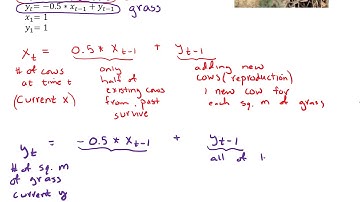 yₜ = −0.5 * xₜ₋₁ + yₜ₋₁ grass
x₁ = 1
y₁ = 1
xₜ = 0.5 * xₜ₋₁ + yₜ₋₁
# of cows at time t (current x)
only half of existing cows from past survive
adding new cows (reproduction)
1 new cow for each sq. m of grass
yₜ = -0.5 * xₜ₋₁ + yₜ₋₁
# of sq. m of grass current y
all of